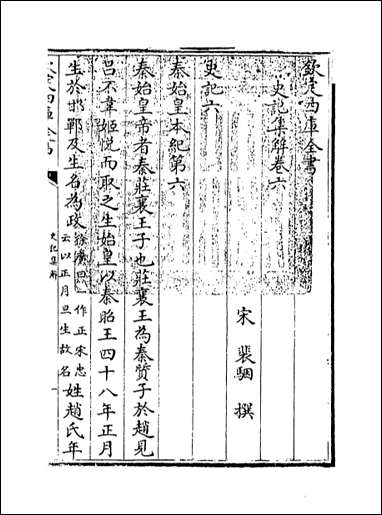 欽定四庫全書
史記集解卷六
宋 裴駰 撰
史記六
秦始皇本紀第六
秦始皇帝者秦莊襄王子也莊襄王為秦質子於趙見
呂不韋姬悅而取之生始皇以秦昭王四十八年正月
生於邯鄲及生名為政徐廣曰一作正宋忠云以正月旦生故名姓趙氏年
欽定四庫全書
史記集解